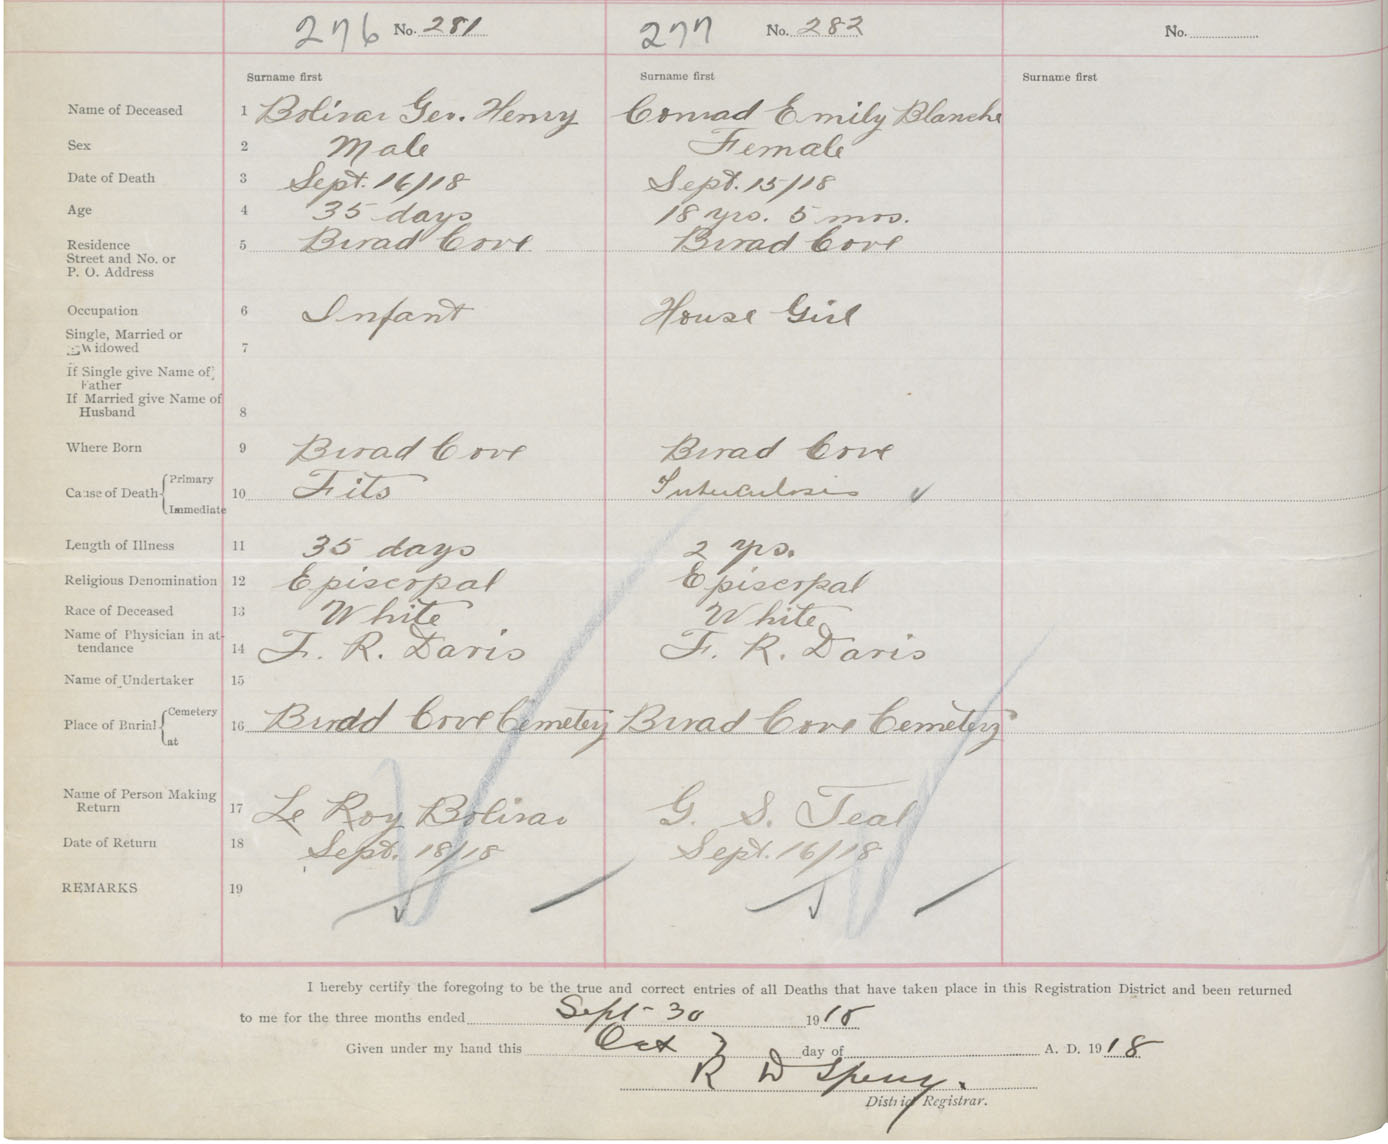 276 No. 281 277 No. 282 No.
Surname first Surname first Surname first
Name of Deceased 1 Bolivar Geo. Henry Conrad Emily Blanche
Sex 2 Male Female
Date of Death 3 Sept. 16/18 Sept. 15/18
Age 4 35 days 18 yrs. 5 mos.
Residence 5 Broad Cove Broad Cove
Street and No. or
P. O. Address
Occupation 6 Infant House Girl
Single, Married or
Widowed 7
If Single give Name of
Father
If Married give Name of
Husband 8
Where Born 9 Broad Cove Broad Cove
Primary
Cause of Death 10 Fits Tuberculosis
Immediate
Length of Illness 11 35 days 2 yrs.
Religious Denomination 12 Episcopal Episcopal
Race of Deceased 13 White White
Name of Physician in at-
tendance 14 F. R. Davis F. R. Davis
Name of Undertaker 15
Cemetery
Place of Burial 16 Broad Cove Cemetery Broad Cove Cemetery
at
Name of Person Making
Return 17 Le Roy Bolivar G. S. Teal
Date of Return 18 Sept. 18/18 Sept. 16/18
REMARKS 19
I hereby certify the foregoing to be the true and correct entries of all Deaths that have taken place in this Registration District and been returned
to me for the three months ended Sept 30 1918
Given under my hand this Oct 7 day of A. D. 1918
R D Sperry.
District Registrar.